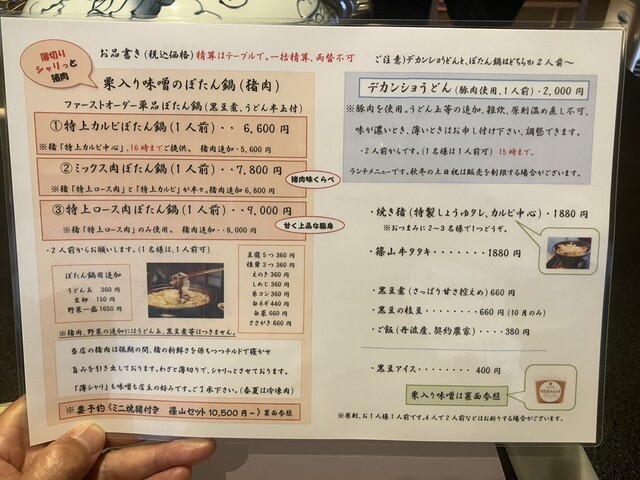 薄切り
シャリっと
猪肉
お品書き(税込価格)精算はテーブルで。一括精算、両替不可
栗入り味噌のぼたん鍋(猪肉)
ファーストオーダー単品ぼたん鍋(黒豆煮、うどん半玉付)
①特上カルビぼたん鍋(1人前)・・6,600円
※猪「特上カルビ中心」、16時までご提供。 猪肉追加・5,600円
②ミックス肉ぼたん鍋(1人前)・・7,800円
※猪「特上ロース肉」と「特上カルビ」が半々。猪肉追加 6,800円
猪肉味くらべ
③特上ロース肉ぼたん鍋(1人前)・・9,000円
※猪「特上ロース肉」のみ使用。 猪肉追加・・8,000円
甘く上品な脂身
・2人前からお願いします。(1名様は、1人前可)
ぼたん鍋用追加
うどん玉 360円
生卵 150円
野菜一盛 1650円
豆腐5つ 360円
椎茸3つ 360円
えのき 360円
しめじ 360円
糸コン 360円
白ネギ 440円
白菜 660円
ささがき 660円
※猪肉、野菜の追加にはうどん玉、黒豆煮等はつきません。
当店の猪肉は猟期の間、猪の新鮮さを保ちつつチルドで寝かせ
旨みを引き出しております。わざと薄切りで、シャリっとさせております。
「薄シャリ」も味噌も店主の好みです。ご了承下さい。(春夏は冷凍肉)
※要予約《ミニ焼猪付き 篠山セット 10,500円~》裏面参照
ご注意)デカンショうどんと、ぼたん鍋はどちらか2人前~
デカンショうどん(豚肉使用、1人前)・2,000円
※豚肉を使用。うどん玉等の追加、雑炊、原則温め直し不可、
味が濃いとき、薄いときはお申し付け下さい、調整できます。
・2人前からです。(1名様は1人前可) 15時まで。
ランチメニューです。秋冬の土日祝は販売を制限する場合がございます。
・焼き猪(特製しょうゆタレ、カルビ中心)・1880円
※おつまみに2~3名様で1つどうぞ。
・篠山牛タタキ・・・・・・・1880円
・黒豆煮(さっぱり甘さ控えめ)660円
・黒豆の枝豆・・・・・・・660円(10月のみ)
・ご飯(丹波産、契約農家)・・・・380円
・黒豆アイス・・・・・・・400円
栗入り味噌は裏面参照
※原則、お1人様1人前です。4人で2人前などはお断りする場合がございます。